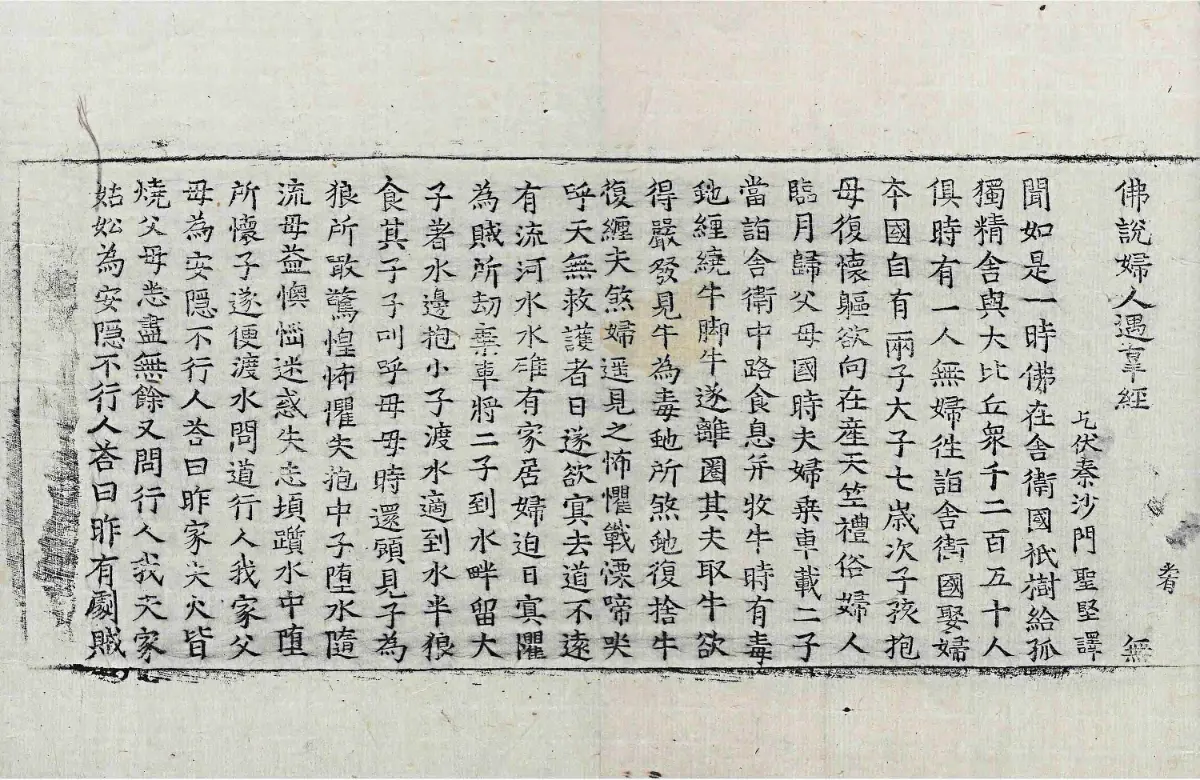 佛說婦人遇辜經 無
乞伏秦沙門聖堅譯
聞如是一時佛在舍衛國祇樹給孤
獨精舍與大比丘衆千二百五十人
俱時有一人無婦往詣舍衛國娶婦
本國自有兩子大子七歲次子孩抱
母復懷軀欲向在產天竺禮俗婦人
臨月歸父母國時夫婦乗車載二子
當詣舍衛中路食息并牧牛時有毒
虵經繞牛脚牛遂離圈其夫取牛欲
得嚴發見牛為毒虵所煞虵復捨牛
復纏夫煞婦遥見之怖懼戰慄啼哭
呼天無救護者日遂欲冥去道不遠
有流河水水碓有家居婦迫日冥懼
為賊所劫棄車將二子到水畔留大
子著水邊抱小子渡水適到水半狼
食其子子叫呼母母時還顧見子為
狼所噉驚惶怖懼失抱中子墮水隨
流母益懊惱迷惑失志頃躓水中墮
所懷子遂便渡水問道行人我家父
母為安隱不行人荅曰昨家失火皆
燒父母悉盡無餘又問行人我夫家
姑妐為安隱不行人荅曰昨有劇賊